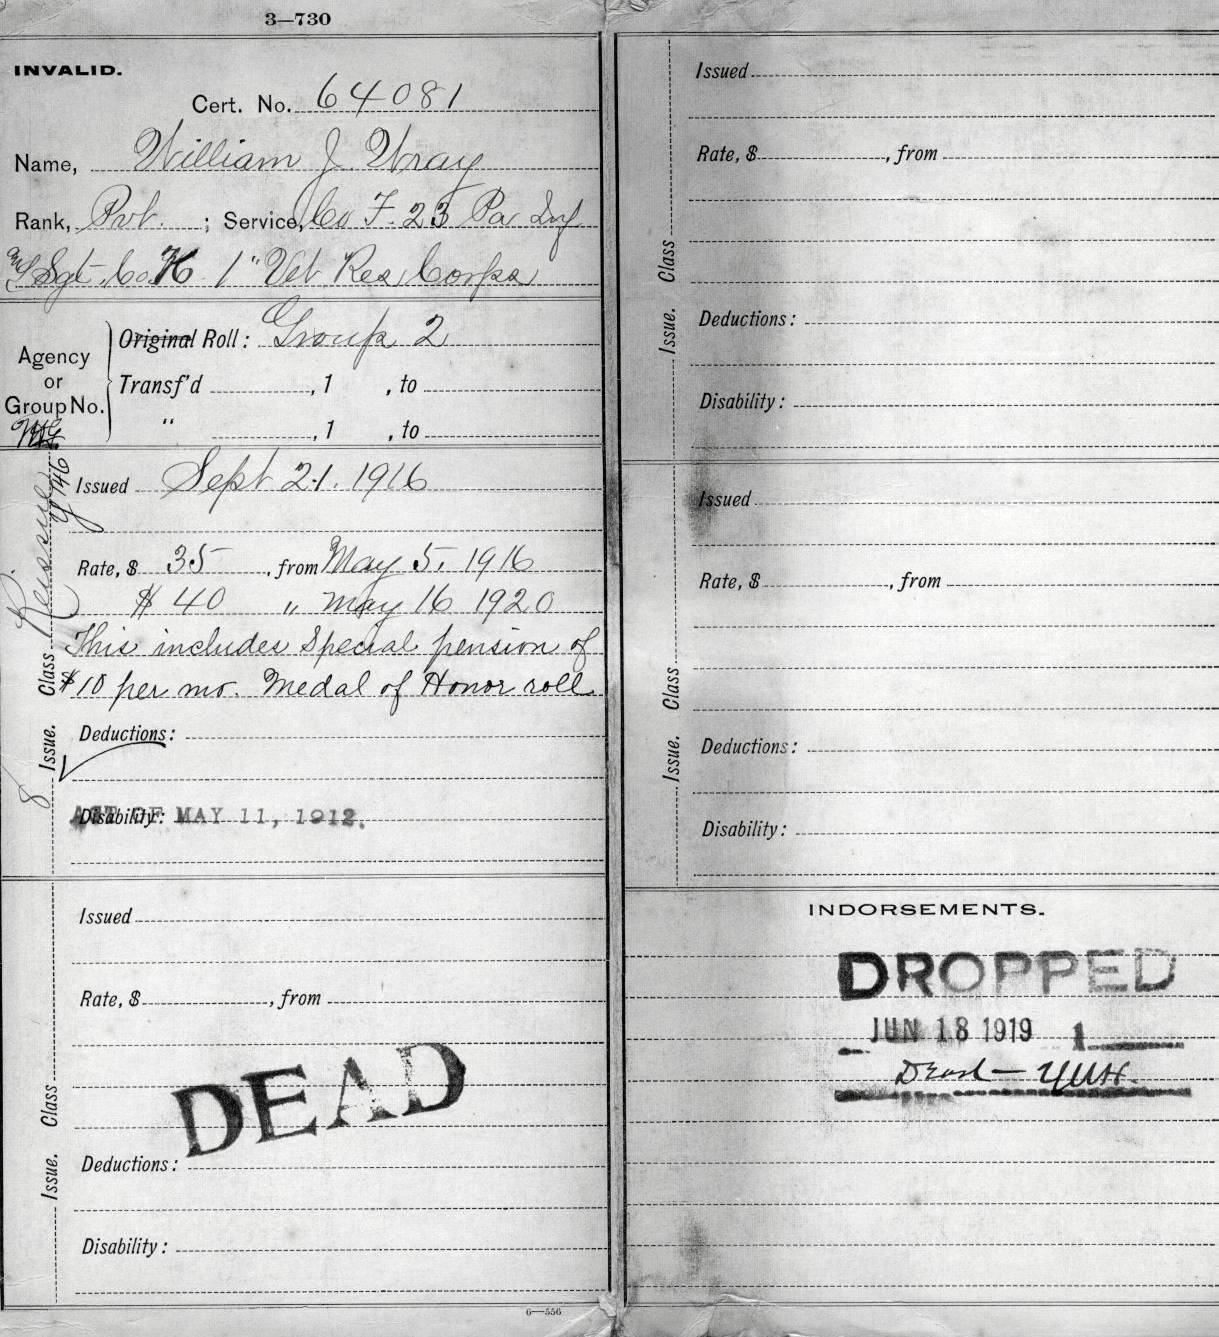 3—730
INVALID.
Cert. No. 64081
Name, William J. Wray
Rank, Pvt. ; Service, Co F. 23 Pa Inf
and Sgt. Co. K 1" Vet Res, Corps
Agency or Group No.
Original Roll: Group 2
Transf'd , 1 , to
" , 1 , to
Reissue
Issue. Class
Issued Sept 21. 1916
Rate, $ 35 , from May 5, 1916
$ 40 " May 16 1920
This includes Special pension of
$10 per mo. Medal of Honor roll
Deductions:
Disability:
ACT OF MAY 11, 1912.
Issue. Class
Issued
Rate, $ , from
DEAD
Deductions:
Disability:
6—556
Issue. Class
Issued
Rate, $ , from
Deductions:
Disability:
Issue. Class
Issued
Rate, $ , from
Deductions:
Disability:
INDORSEMENTS.
DROPPED
JUN 18 1919 1
Dead —